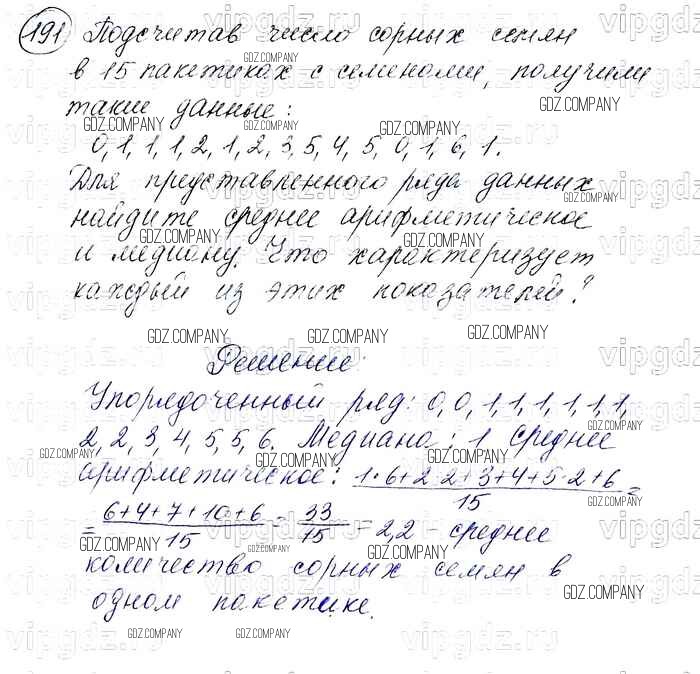 191 Подсчитав число сорных семян
в 15 пакетиках с семенами, получили
такие данные:
0, 1, 1, 1, 2, 1, 2, 3, 5, 4, 5, 0, 1, 6, 1.
Для представленного ряда данных
найдите среднее арифметическое
и медиану. Что характеризует
каждый из этих показателей?
Решение:
Упорядоченный ряд: 0, 0, 1, 1, 1, 1, 1, 1,
2, 2, 3, 4, 5, 5, 6. Медиана: 1 среднее
арифметическое: (1·6+2·2+3+4+5·2+6)/15 =
= (6+4+7+10+6)/15 = 33/15 = 2,2 - среднее
количество сорных семян в
одном пакетике.
GDZ.COMPANY
vipgdz.ru